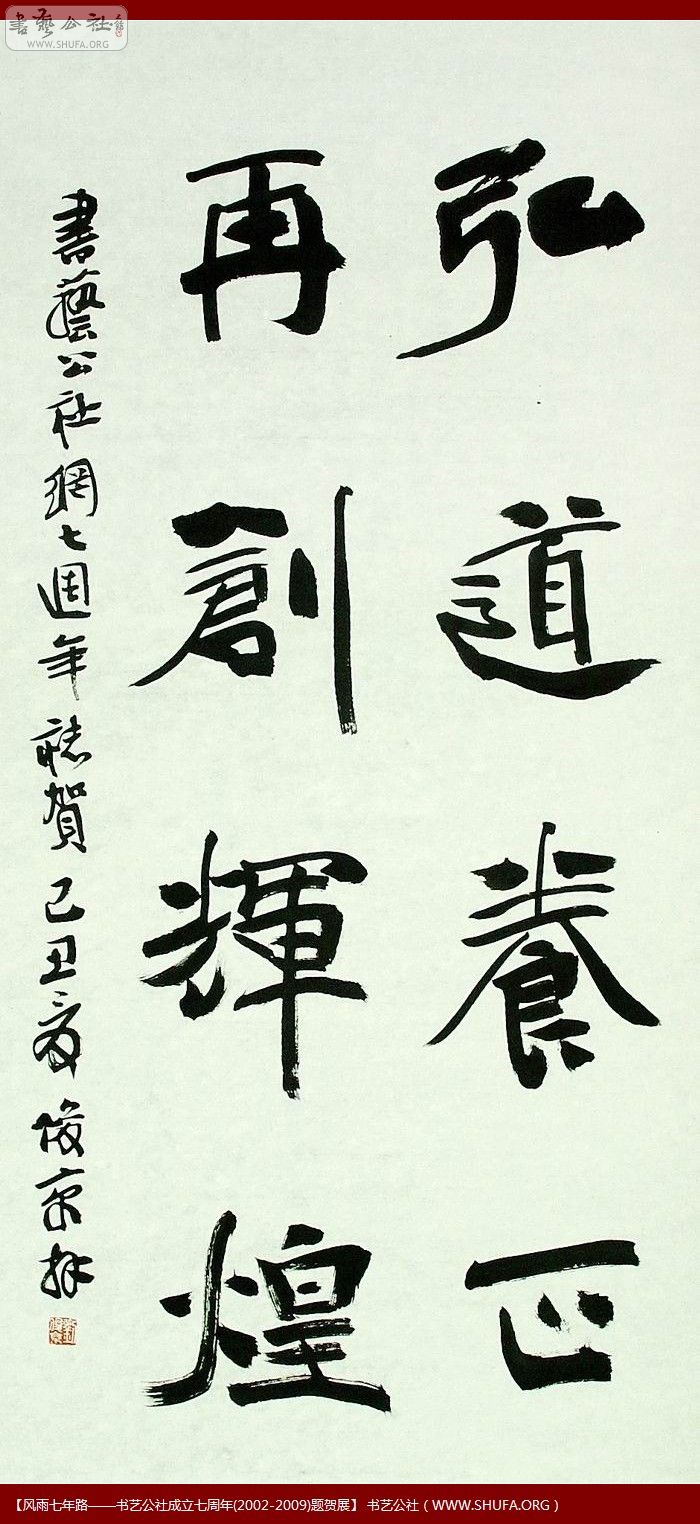 書藝公社
WWW.SHUFA.ORG
弘道養正
再創輝煌
書藝公社網七週年誌賀己丑夏俊京拜
【风雨七年路——书艺公社成立七周年(2002-2009)题贺展】 书艺公社（WWW.SHUFA.ORG）